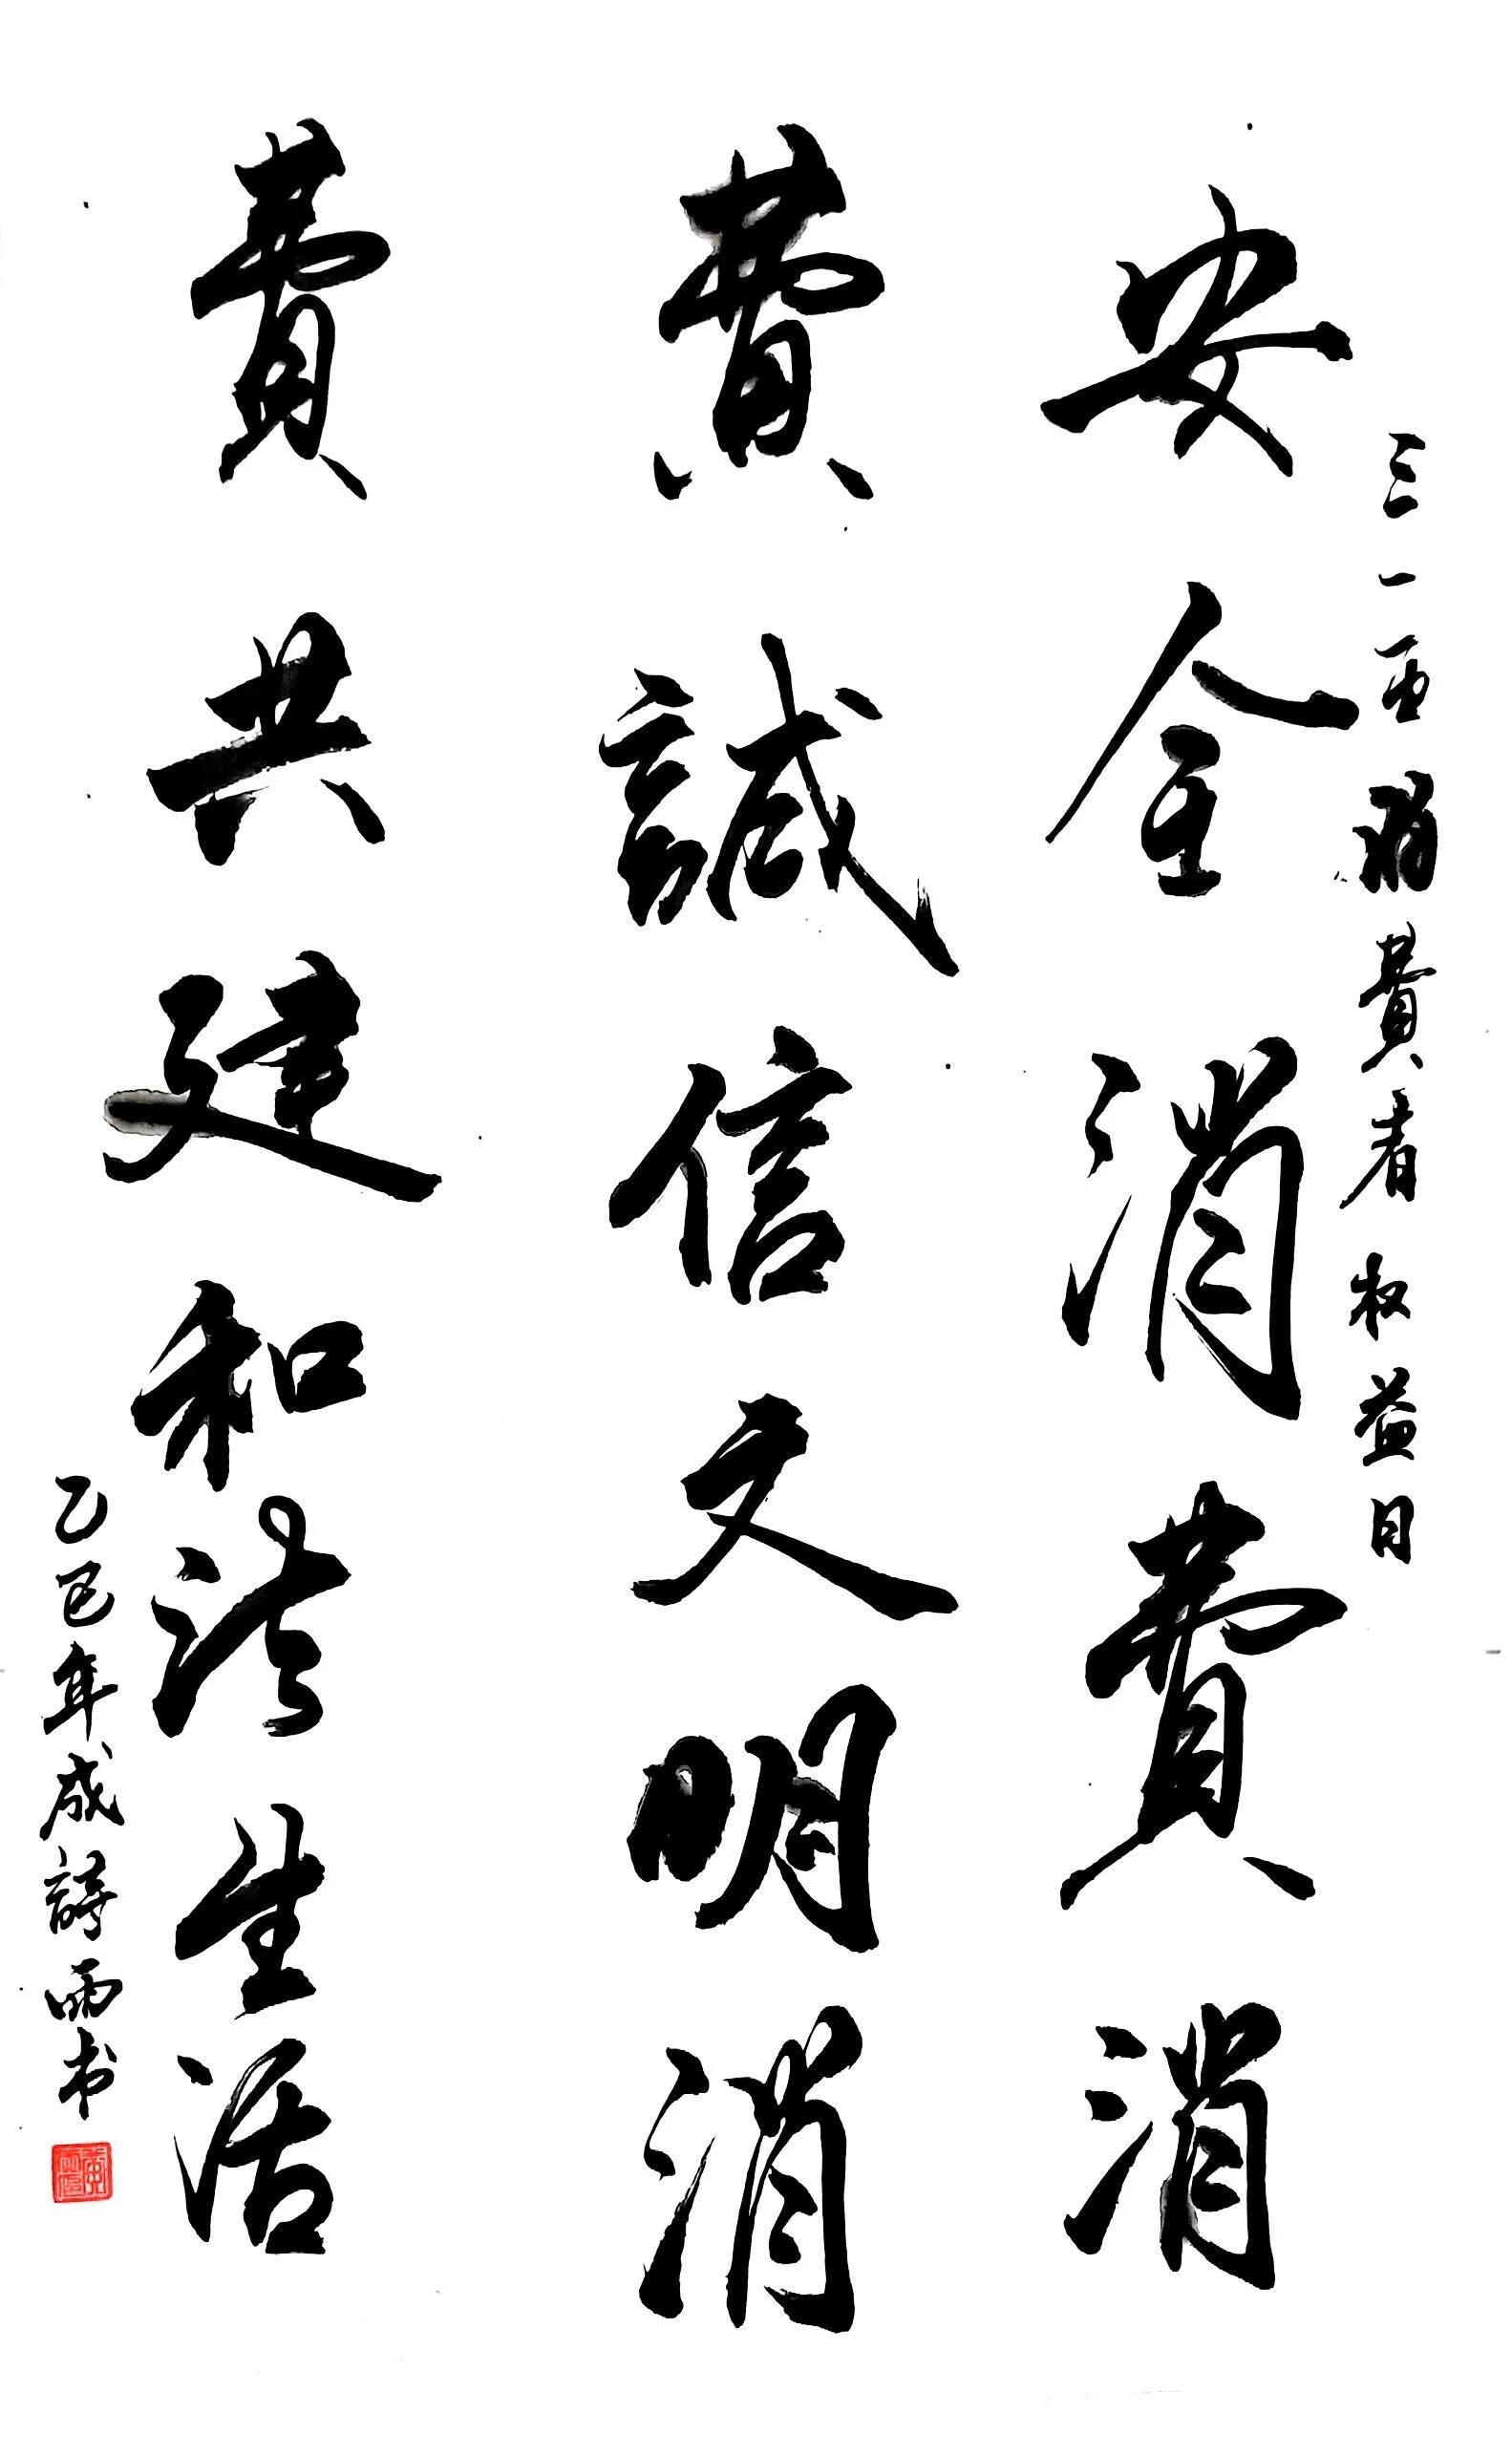 三一五消費者权益日
安全消費消
費誠信文明消
費共建和洽生活
乙巳年詩雨书